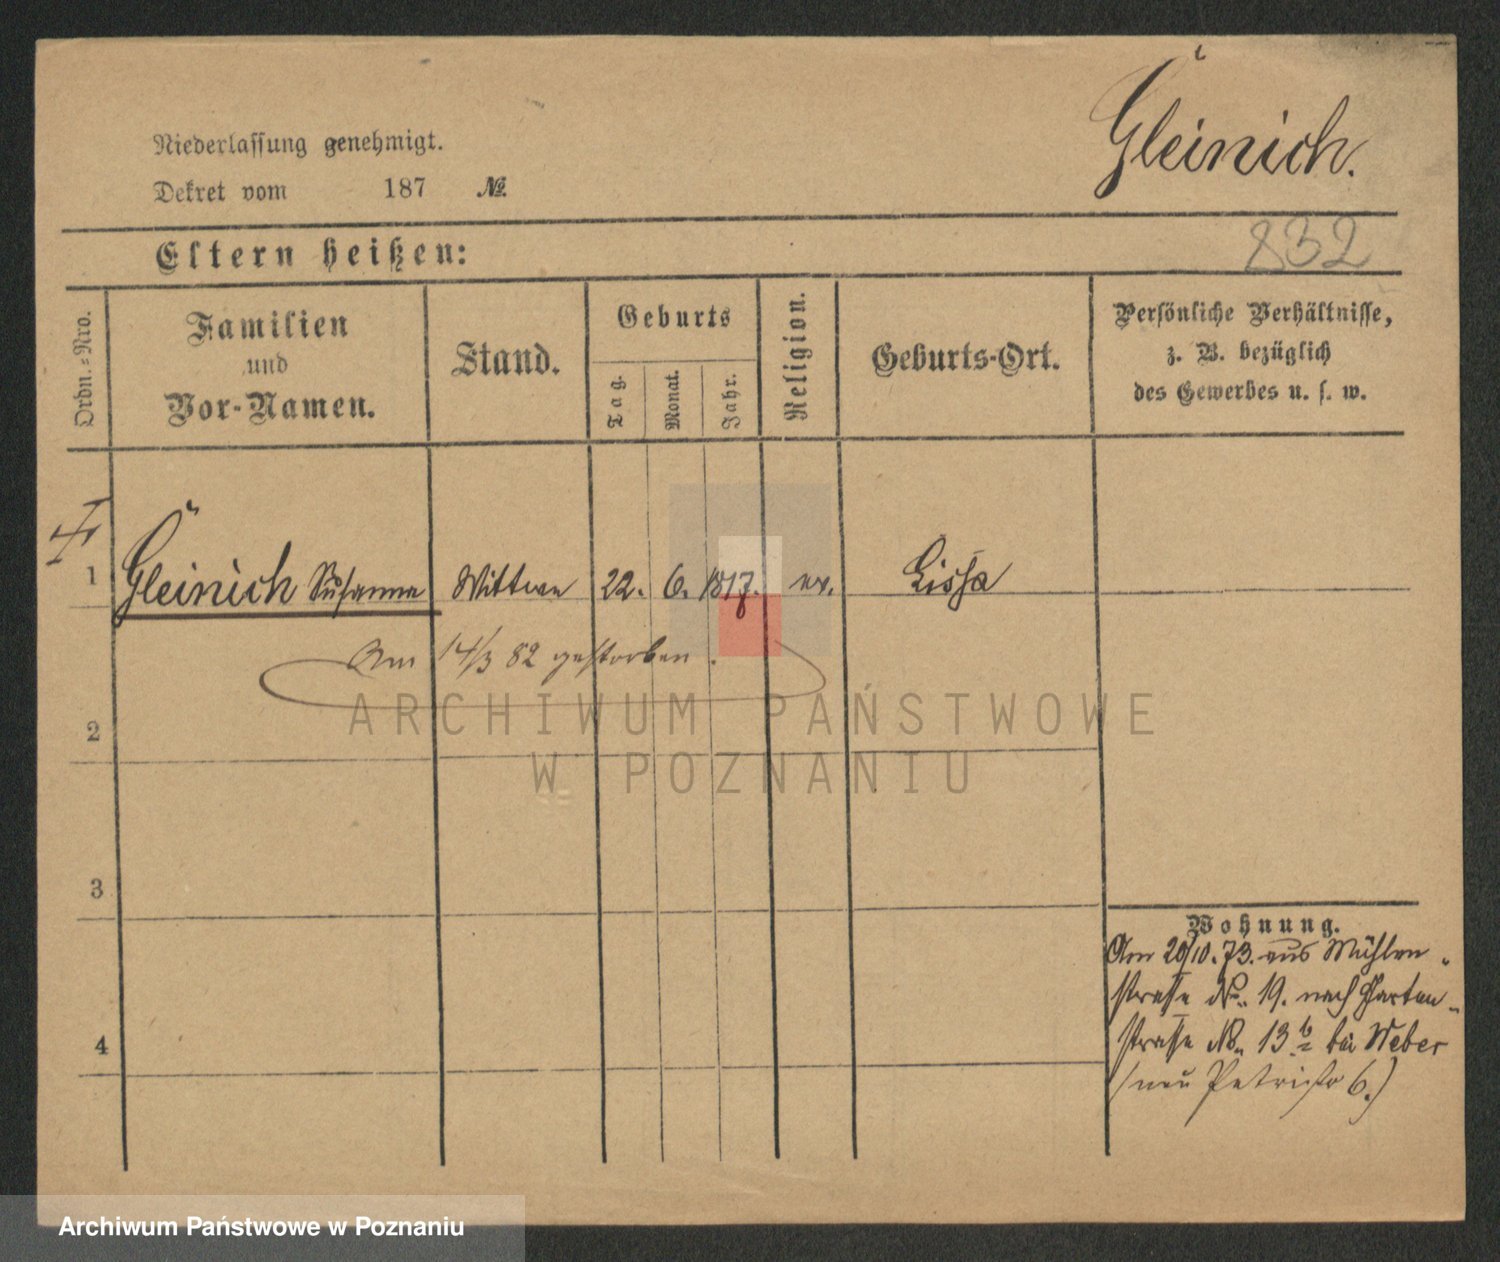 Gleinich.
Niederlassung genehmigt.
Dekret vom 187 No.
Eltern heißen:
832
Ordn.-Nro.
Familien
und
Vor-Namen.
Stand.
Geburts
Tag.
Monat.
Jahr.
Religion.
Geburts-Ort.
Persönliche Verhältnisse,
z. B. bezüglich
des Gewerbes u. s. w.
1 Gleinich Susanna Wittwe 22. 6. 1817. ev. Lissa
Am 14/3 82 gestorben.
ARCHIWUM PAŃSTWOWE
W POZNANIU
2
3
4
Wohnung.
Am 20/10. 73. aus Mühlen-
strasse No. 19. nach Garten-
strasse No. 13 b bei Weber
(neu Petristr 6.)
Archiwum Państwowe w Poznaniu